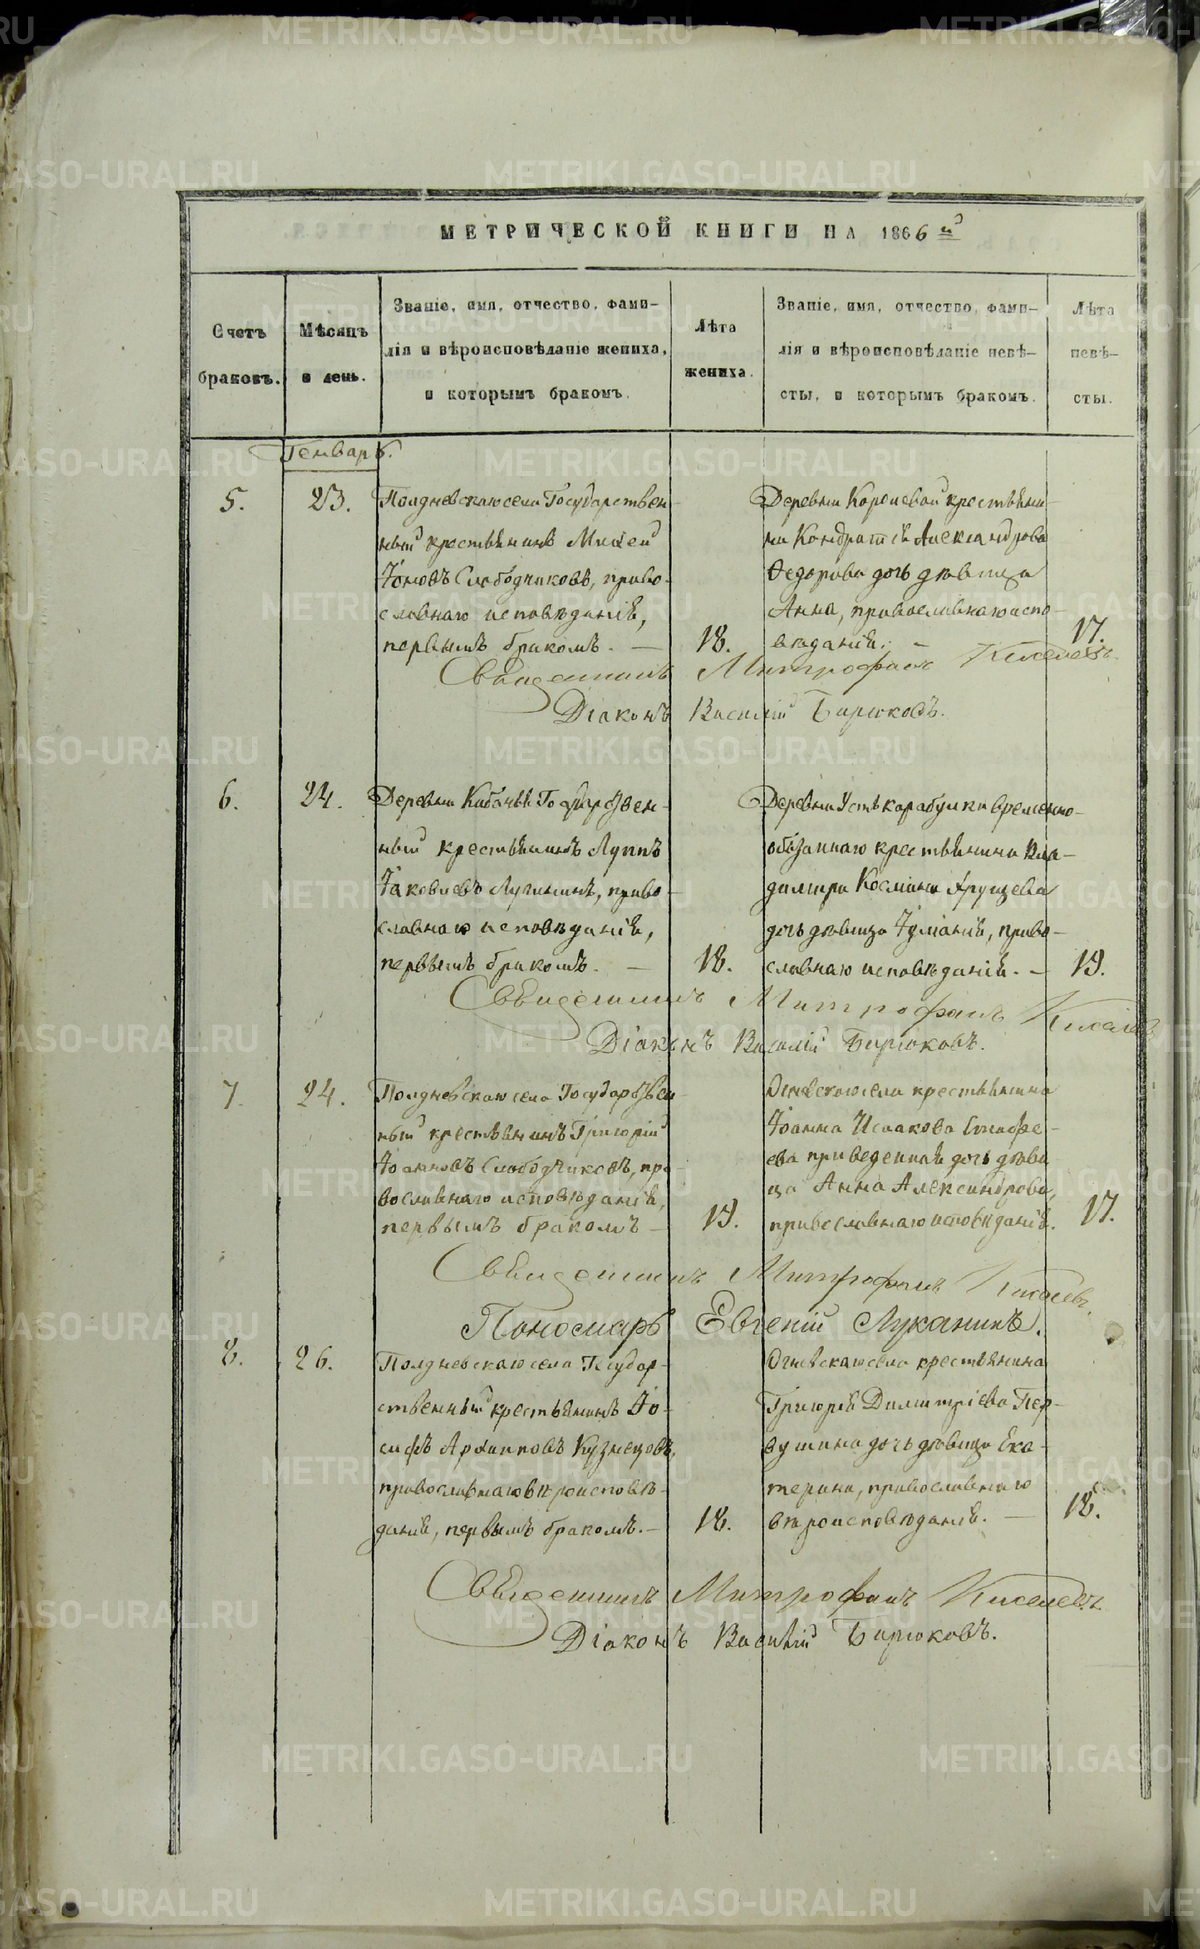 МЕТРИЧЕСКОЙ КНИГИ НА 1866 й
Счетъ
браковъ.
Мѣсяцъ
и день.
Званіе, имя, отчество, фами-
лія и вѣроисповѣданіе жениха,
и которымъ бракомъ.
Лѣта
жениха.
Званіе, имя, отчество, фами-
лія и вѣроисповѣданіе невѣ-
сты, и которымъ бракомъ.
Лѣта
невѣ-
сты.
Генварь.
5.
23.
Полдневскаго села Государствен-
ный крестьянинъ
Іоновъ Слободчиковъ, право-
славнаго исповѣданія,
первымъ бракомъ. —
18.
Деревни крестьяни-
на Кондратія Александрова
Ѳедорова дочь дѣвица
Анна, православнаго испо-
вѣданія. —
17.
Священникъ Митрофанъ Киселевъ.
Діаконъ Василій Бирюковъ.
6.
24.
Деревни Государствен-
ный крестьянинъ Луппъ
Іаковлевъ Лучининъ, право-
славнаго исповѣданія,
первымъ бракомъ. —
18.
Деревни Усть карабулки временно-
обязаннаго крестьянина Вла-
димира Космина Хрущева
дочь дѣвица Іуліанія, право-
славнаго исповѣданія. —
19.
Священникъ Митрофанъ Киселевъ
Діаконъ Василій Бирюковъ.
7.
24.
Полдневскаго села Государствен-
ный крестьянинъ Григорій
Іоанновъ Слободчиковъ, пра-
вославнаго исповѣданія,
первымъ бракомъ —
19.
Огневскаго села крестьянина
Іоанна Исаакова
приведенная дочь дѣви-
ца Анна Александрова,
православнаго исповѣданія.
17.
Священникъ Митрофанъ Киселевъ.
Пономарь Евгеній Луканинъ.
8.
26.
Полдневскаго села Государ-
ственный крестьянинъ Іо-
сифъ Архиповъ Кузнецовъ,
православнаго вѣроисповѣ-
данія, первымъ бракомъ. —
18.
Огневскаго села крестьянина
Григорія Димитріева Пер-
вушина дочь дѣвица Ека-
терина, православнаго
вѣроисповѣданія. —
18.
Священникъ Митрофанъ Киселевъ.
Діаконъ Василій Бирюковъ.
METRIKI.GASO-URAL.RU